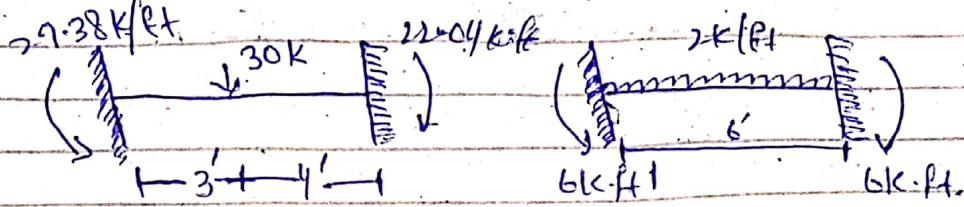 29.38K/ft. 30K 22.04K.ft 2K/ft
3' 4' 6'
6K.ft 6K.ft.